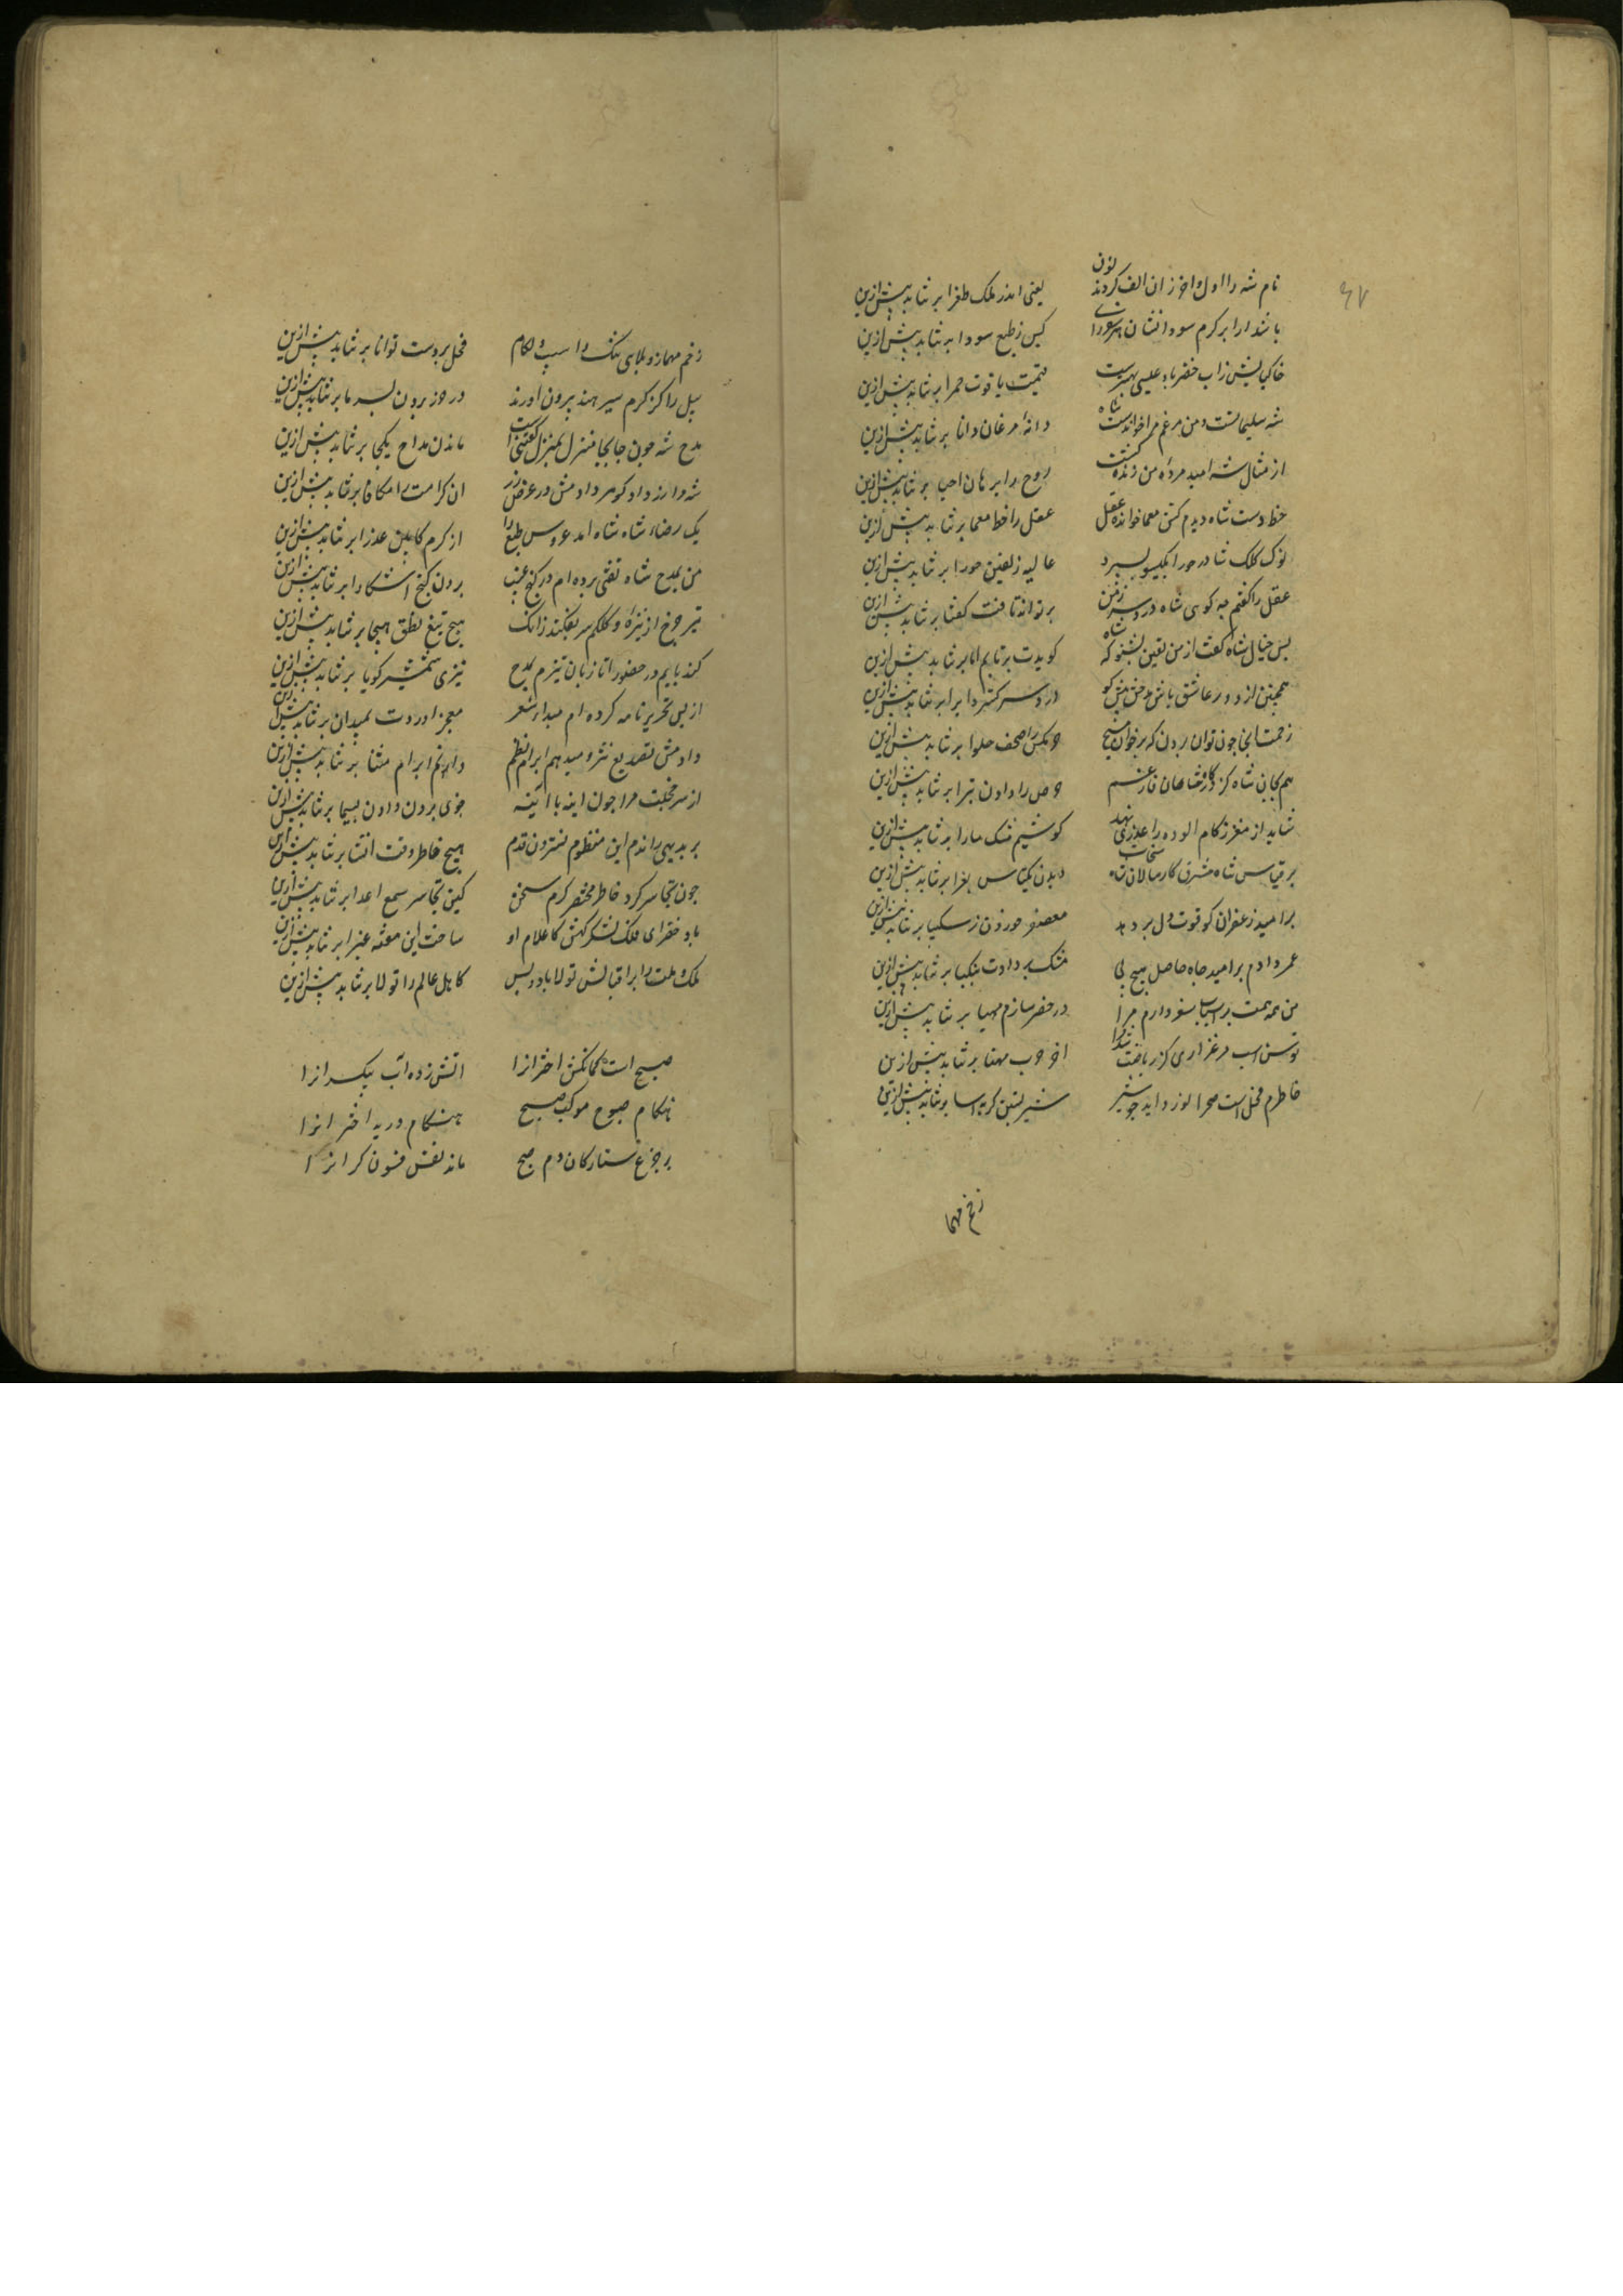 نام شه را اول و اخر زان الف کردند نون یعنی اندر ملک طغرا برنتابد بیش ازین
کین ز طبع سودا برنتابد بیش ازین
خاک پایش زاب خضر باد عیسی بهترست قیمت یاقوت حمرا برنتابد بیش ازین
شه سلیمانست و من مرغم مرا خواندست شاه دانهٔ مرغان دانا برنتابد بیش ازین
از مثال شه امید مردهٔ من زنده گشت روح را برهان احیا برنتابد بیش ازین
خط دست شاه دیدم کش معما خوانده عقل عقل را خط معما برنتابد بیش ازین
نوک کلک شاه را حورا بگیسو بسپرد غالیه زلفین حورا برنتابد بیش ازین
عقل را گفتم چه کویی شاه درد سر زمن برتواند تافت گفتا برنتابد بیش ازین
پس خیال شاه گفت از من یقین بشنو که شاه گویدت برتابم اما برنتابد بیش ازین
همچنین از دور عاشق باش و مدحش بیش گو درد سر کمتر ده ایرا برنتابد بیش ازین
زحمت انجا چون توان بردن که برخوان مسیح خرمگس را صحن حلوا برنتابد بیش ازین
هم بجان شاه کز درگاه شاهان فارغم حرص را دادن تبرا برنتابد بیش ازین
شاید ار مغز زکام الوده را عذری نهند کو نسیم مشک سارا برنتابد بیش ازین
بر قیاس شاه مشرق کارسالان شاه سنجاب دیدن بکتاش و بغرا برنتابد بیش ازین
بر امید زعفران کو قوت دل بر دهد معصفر خوردن ز سکبا برنتابد بیش ازین
عمر دادم بر امید جاه حاصل هیچ نی مشک بردادن بنکبا برنتابد بیش ازین
من همه همت بر اسباب سفر دارم مرا در حضر سازم مهیا برنتابد بیش ازین
توسن اسب مرغزاری کز ریاضت شد اخر چرب مهنا برنتابد بیش ازین
خاطرم فحل است صحرا نورد اید چو شیر شیر بستن گربه اسا برنتابد بیش ازین
زخم مهما
زخم مهماز و بلای تنگ و اسیب لگام فحل بر دست توانا برنتابد بیش ازین
پیل را کز گرم سیر هند بیرون اورند در خزر بردن بسرما برنتابد بیش ازین
مدح شه چون جابجا منزل بمنزل گفتنی است ماندن مداح یکجا برنتابد بیش ازین
شه مرا زر داد گوهر دادمش در عرض زر ان کرامت را مکافا برنتابد بیش ازین
یک رضای شاه شاه امد عروس طبع را از کرم کابین عذرا برنتابد بیش ازین
من بمدح شاه نقبی برده ام در گنج غیب بردن گنج اشکارا برنتابد بیش ازین
تیر چرخ از نیزهٔ کلکم سر بفکند زانک هیچ تیغ نطق هیجا برنتابد بیش ازین
کند پایم در حضور اما زبان تیزم بمدح تیزی شمشیر گویا برنتابد بیش ازین
از پس تحریر نامه کرده ام مبدا بشعر معجز
دادمش تصدیع نثر و میدهم ابرام نظم دانم ابرام مثنا برنتابد بیش ازین
از سر خجلت مرا چون اینه با اینه خوی برون دادن بسیما برنتابد بیش ازین
بر بدیهی راندم این منظوم نستردم قلم هیچ خاطر وقت انشا برنتابد بیش ازین
چون تجاسر کرد خاطر مختصر کردم سخن کین تجاسر سمع اعدا برنتابد بیش ازین
باد خضرای فلک لشکرگهش کاعلام او ساحت این هفت غبرا برنتابد بیش ازین
ملک و ملت را بر اقبالش تولا باد و بس کاهل عالم را تولا برنتابد بیش ازین
صبح است کمانکش اختران را اتش زده اب پیکران را
هنگام صبوح موکب صبح هنگام دریده اختران را
بر چرغ ستارگان دم صبح ماند نفس فسونگران را